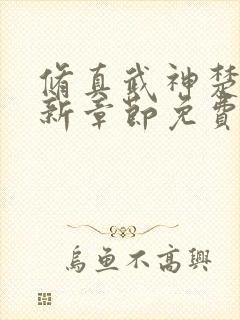 脩真武神楚
新章節免費
烏魚不高興